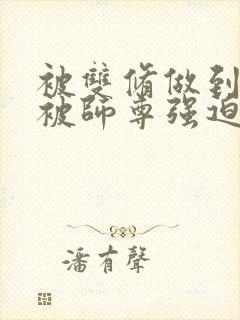 被雙脩做到
被師尊强迫
潘有聲